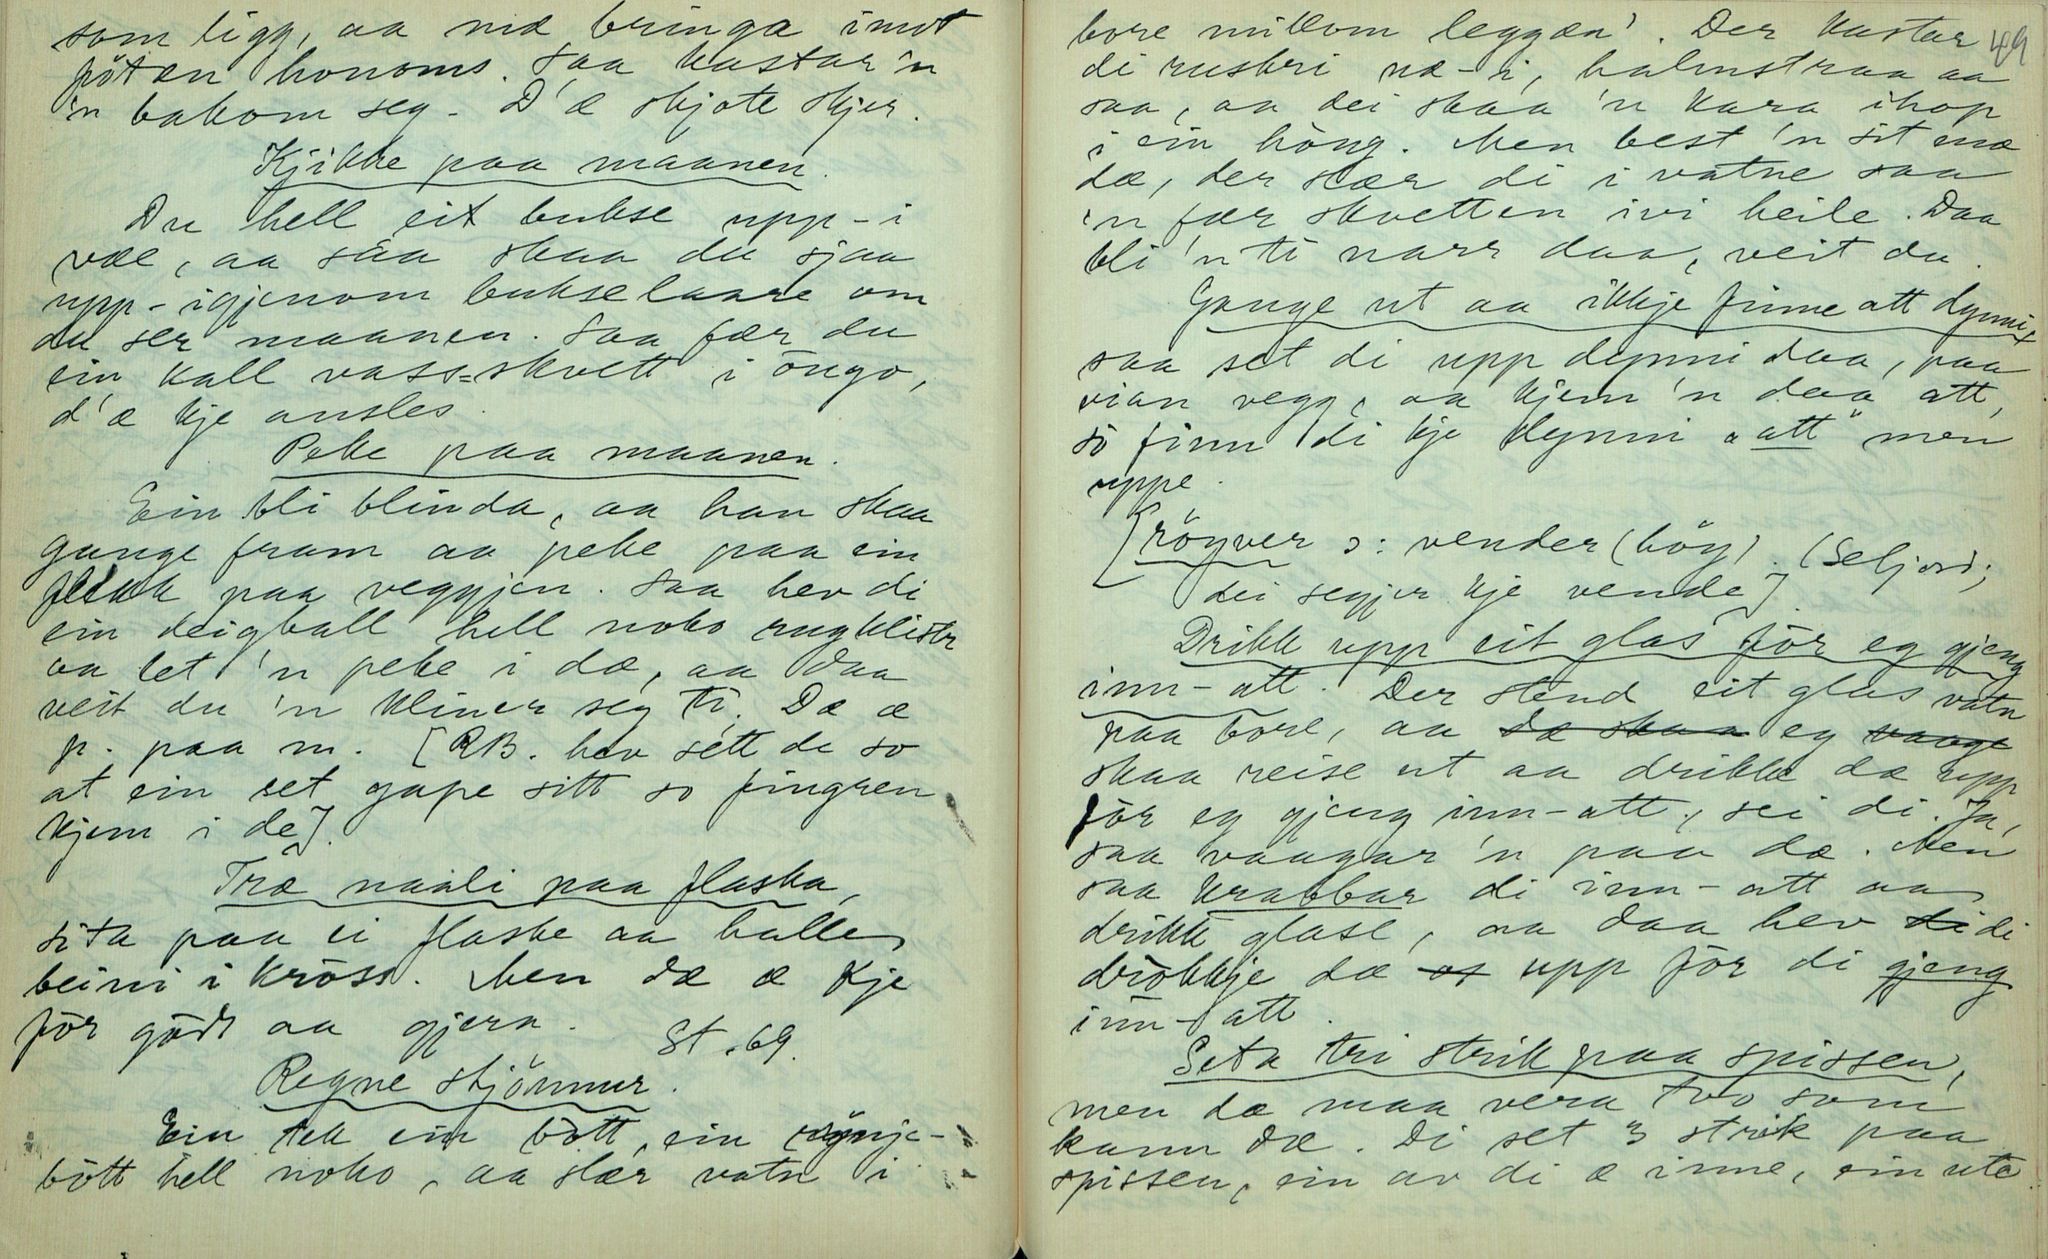 som ligg, aa mæ bringa imot
föten honoms. Saa kastar 'n
'n bakom seg. D'æ skjote skjer.
Kjikke paa maanen.
Du hell eit bukse upp-i
væe, aa saa skaa du sjaa
upp-igjenom bukselaare om
du ser maanen. Saa fær du
ein kall vass-skvett i öugo,
d'æ kje ansles.
Peke paa maanen.
Ein bli blinda, aa han skaa
gange fram aa peke paa ein
flekk paa veggjen. Saa hev di
ein deigball hell noko rugklistr
aa let 'n peke i dæ, aa daa
veit du 'n kliner seg ti. Dæ æ
p. paa m. [RB. hev sett de so
at ein let gape sitt so fingren
kjem i de].
Træ naali paa flaska,
sita paa ei flaske aa halle
beini i kröss. Men dæ æ kje
för godt aa gjera. St. 69.
Regne stjönnur.
Ein tek ein bött, ein
bött hell noko, aa slær vatn i
49
bore millom leggan'. Der kastar
di ruskri næ-i, halmstraa aa
saa, aa dei skaa 'n kara ihop
i ein haug. Men best 'n sit mæ
dæ, der slær di i vatne saa
'n fær skvetten ivi heile. Daa
bli 'n ti narr daa, veit du.
Gange ut aa ikkje finne att dynni,
saa set di upp dynni daa, paa
vian vegg, aa kjem 'n daa att,
so finn di kje dynni „att" men
uppe.
[röyver ɔ: vender (höy). (Seljord;
dei segjer kje vende].
Drikk upp eit glas för eg gjeng
inn-att. Der stend eit glas vatn
paa bore, aa dæ skaa eg vaage
skaa reise ut aa drikke dæ upp
för eg gjeng inn-att, sei di. Ja,
saa vaagar 'n paa dæ. Men
saa krabbar di inn-att aa
drikk glase, aa daa hev di di
drokkje dæ upp för di gjeng
inn-att.
Seta tri strik paa spissen,
men dæ maa vera two som
kann dæ. Di set 3 strik paa
spissen, ein av di æ inne, ein ute.